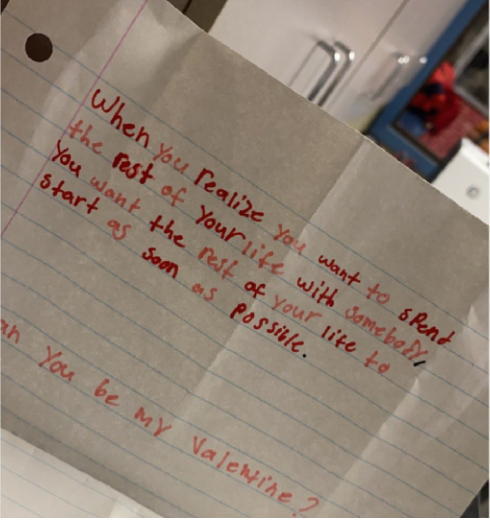 When You realize You want to spend
the rest of Your life with somebody,
You want the rest of Your life to
start as soon as possible.
an You be my Valentine?